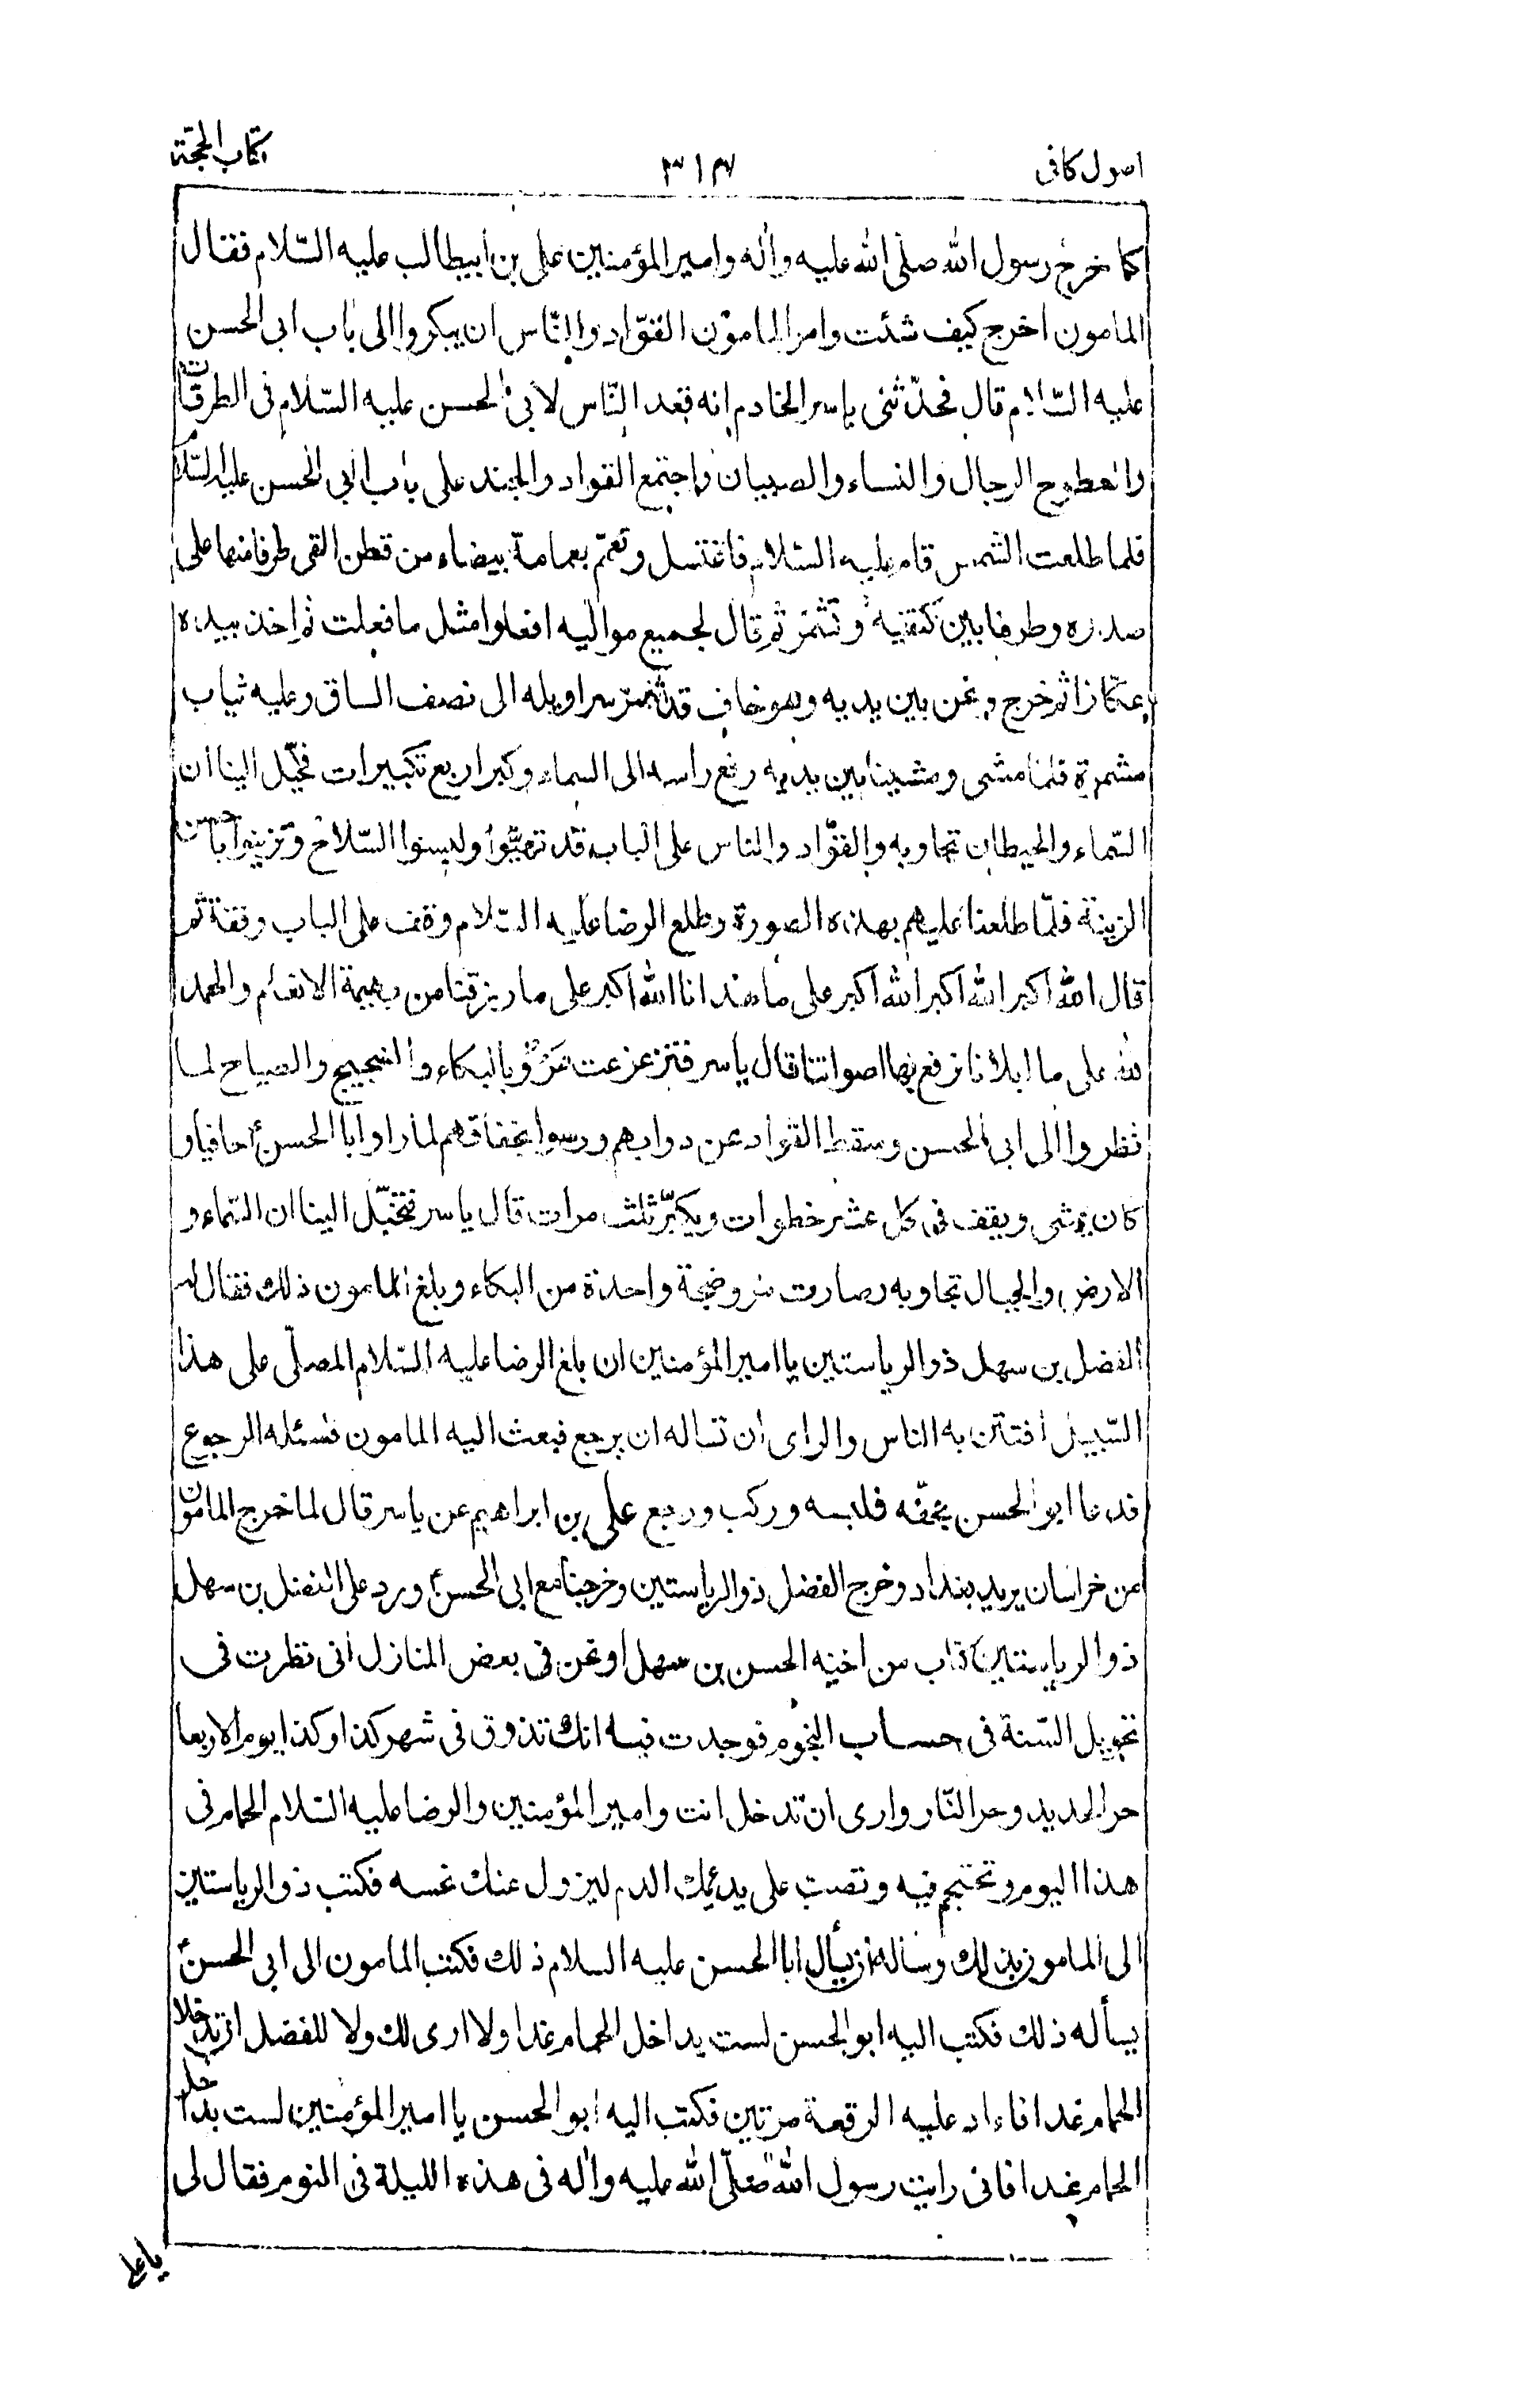 اصول كافى
٣١٣
كتاب الحجّة
كما خرج رسول الله صلّى الله عليه واٰله وامير المؤمنين على بن ابيطالب عليه السّلام فقال
المامون اخرج كيف شئت وامر المامون القوّاد والنّاس ان يبكروا الى باب ابى الحسن
عليه السّلام قال فحدّثنى ياسر الخادم انه قعد النّاس لابى الحسن عليه السّلام فى الطرقات
والسطوح الرجال والنساء والصبيان واجتمع القواد والجند على باب ابى الحسن عليه السّلام
فلما طلعت الشمس قام عليه السّلام فاغتسل وتعمّم بعمامة بيضاء من قطن القى طرفا منها على
صدره وطرفا بين كتفيه وتشمّر ثم قال لجميع مواليه افعلوا مثل ما فعلت ثم اخذ بيده
عكّازا ثم خرج ونحن بين يديه وهو حاف قد شمّر سراويله الى نصف الساق وعليه ثياب
مشمرة فلما مشى ومشينا بين يديه رفع راسه الى السماء وكبر اربع تكبيرات فخيّل الينا ان
السّماء والحيطان تجاوبه والقوّاد والناس على الباب قد تهيّؤا ولبسوا السّلاح وتزينوا باحسن
الزينة فلمّا طلعنا عليهم بهذه الصورة وطلع الرضا عليه السّلام وقف على الباب وقفة ثم
قال الله اكبر الله اكبر الله اكبر على ما هدانا الله اكبر على ما رزقنا من بهيمة الانعام والحمد
لله على ما ابلانا نرفع بها اصواتنا قال ياسر فتزعزعت مرو بالبكاء والضجيج والصياح لما
نظروا الى ابى الحسن وسقط القواد عن دوابهم ورموا بخفافهم لما راوا ابا الحسنؑ حافيا و
كان يمشى ويقف فى كل عشر خطوات ويكبّر ثلث مرات قال ياسر فتخيّل الينا ان السّماء و
الارض والجبال تجاوبه وصارت مرو ضجة واحدة من البكاء وبلغ المامون ذلك فقال له
الفضل بن سهل ذو الرياستين يا امير المؤمنين ان بلغ الرضا عليه السّلام المصلّى على هذا
السّبيل افتتن به الناس والراى ان تساله ان يرجع فبعث اليه المامون فسئله الرجوع
فدعا ابو الحسن بخفّه فلبسه وركب ورجع على بن ابراهيم عن ياسر قال لما خرج المامون
من خراسان يريد بغداد وخرج الفضل ذو الرياستين وخرجنا مع ابى الحسنؑ ورد على الفضل بن سهل
ذو الرياستين كتاب من اخيه الحسن بن سهل ونحن فى بعض المنازل انى نظرت فى
تحويل السّنة فى حساب النجوم فوجدت فيه انك تذوق فى شهر كذا وكذا يوم الاربعا
حر الحديد وحر النّار وارى ان تدخل انت وامير المؤمنين والرضا عليه السّلام الحمام فى
هذا اليوم وتحتجم فيه وتصب على يديك الدم ليزول عنك نحسه فكتب ذو الرياستين
الى المامون بذلك وساله ان يسأل ابا الحسن عليه السلام ذلك فكتب المامون الى ابى الحسنؑ
يسأله ذلك فكتب اليه ابو الحسن لست بداخل الحمام غدا ولا ارى لك ولا للفضل ان تدخلا
الحمام غدا فاعاد عليه الرقعة مرتين فكتب اليه ابو الحسن يا امير المؤمنين لست بداخل
الحمام غدا فانى رايت رسول الله صلّى الله عليه واٰله فى هذه الليلة فى النوم فقال لى
يا على